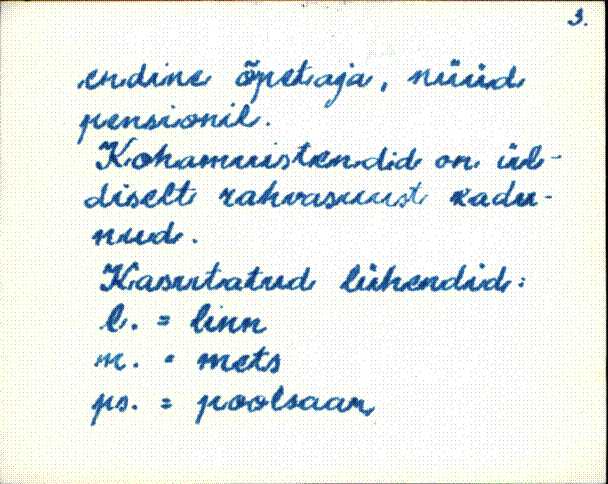 3.
endine õpetaja, nüüd
pensionil.
Kohamuistendid on ül-
diselt rahvasuust kadu-
nud.
Kasutatud lühendid:
l. = linn
m. = mets
ps. = poolsaar